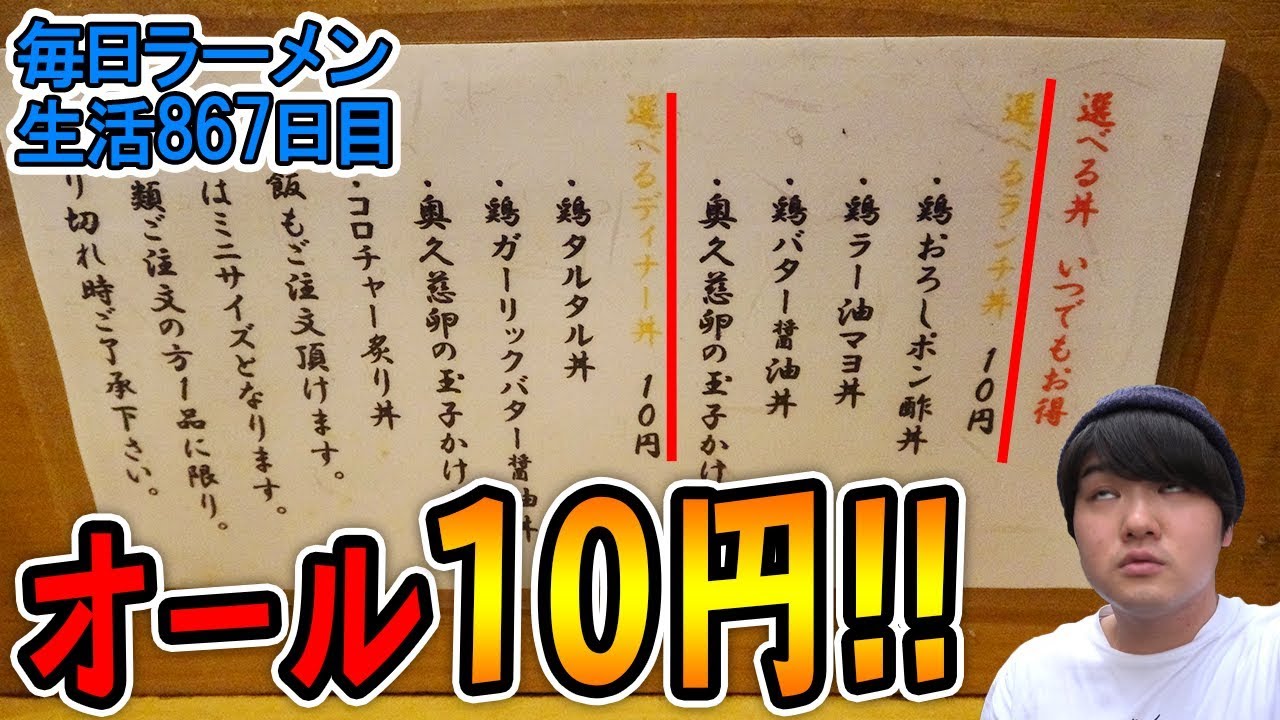 毎日ラーメン
生活867日目
選べる丼 いつでもお得
選べるランチ丼 10円
・鶏おろしポン酢丼
・鶏ラー油マヨ丼
・鶏バター醤油丼
・奥久慈卵の玉子かけ
選べるディナー丼 10円
・鶏タルタル丼
・鶏ガーリックバター醤油丼
・奥久慈卵の玉子かけ
・コロチャー炙り丼
飯もご注文頂けます。
はミニサイズとなります。
類ご注文の方1品に限り。
り切れ時ご了承下さい。
オール10円!!